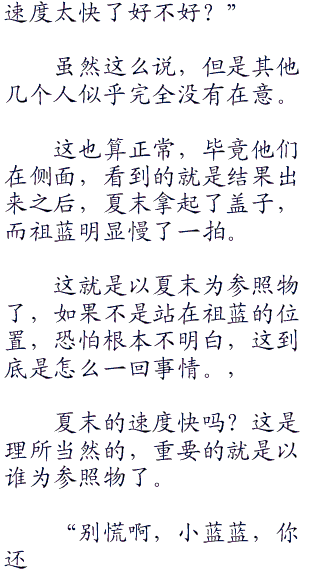 速度太快了好不好？”
虽然这么说，但是其他
几个人似乎完全没有在意。
这也算正常，毕竟他们
在侧面，看到的就是结果出
来之后，夏末拿起了盖子，
而祖蓝明显慢了一拍。
这就是以夏末为参照物
了，如果不是站在祖蓝的位
置，恐怕根本不明白，这到
底是怎么一回事情。，
夏末的速度快吗？这是
理所当然的，重要的就是以
谁为参照物了。
“别慌啊，小蓝蓝，你
还